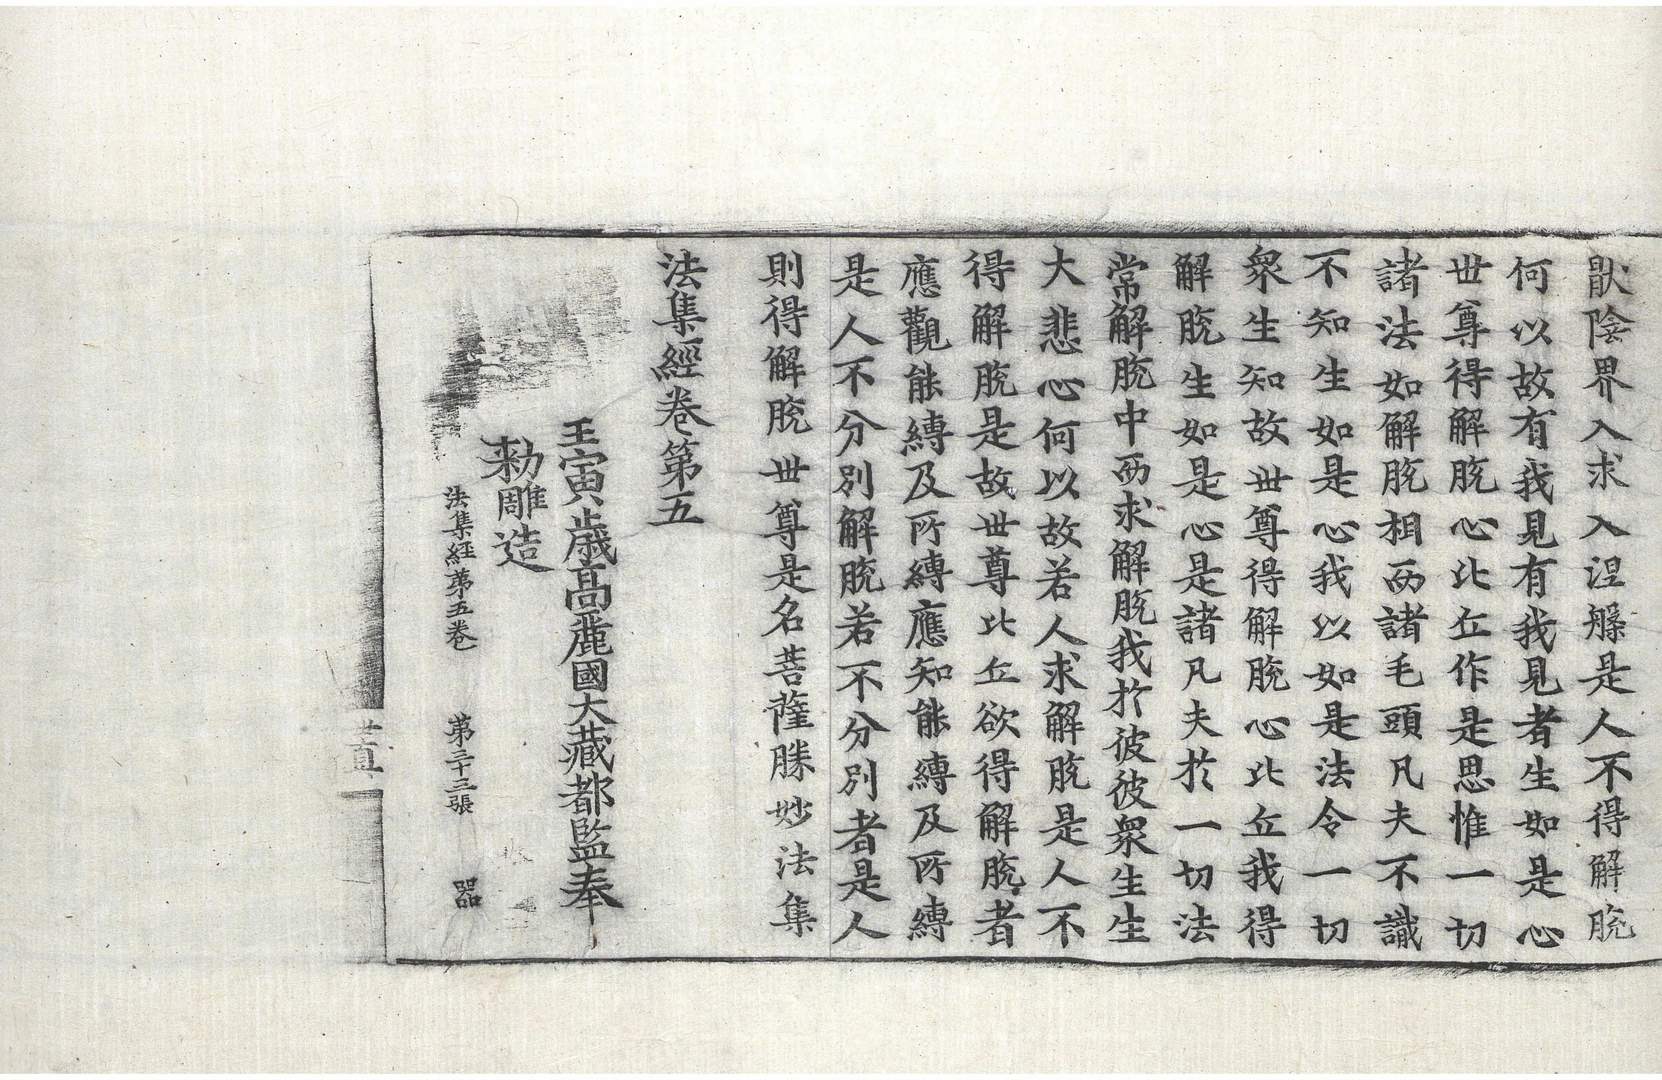 猒陰界入求入涅槃是人不得解脫
何以故有我見有我見者生如是心
世尊得解脫心比丘作是思惟一切
諸法如解脫相而諸毛頭凡夫不識
不知生如是心我以如是法令一切
衆生知故世尊得解脫心比丘我得
解脫生如是心是諸凡夫於一切法
常解脫中而求解脫我於彼彼衆生生
大悲心何以故若人求解脫是人不
得解脫是故世尊比丘欲得解脫者
應觀能縛及所縛應知能縛及所縛
是人不分別解脫若不分別者是人
則得解脫世尊是名菩薩勝妙法集
法集經卷第五
壬寅歲高麗國大藏都監奉
勑雕造
法集経苐五卷 第三十三張 器